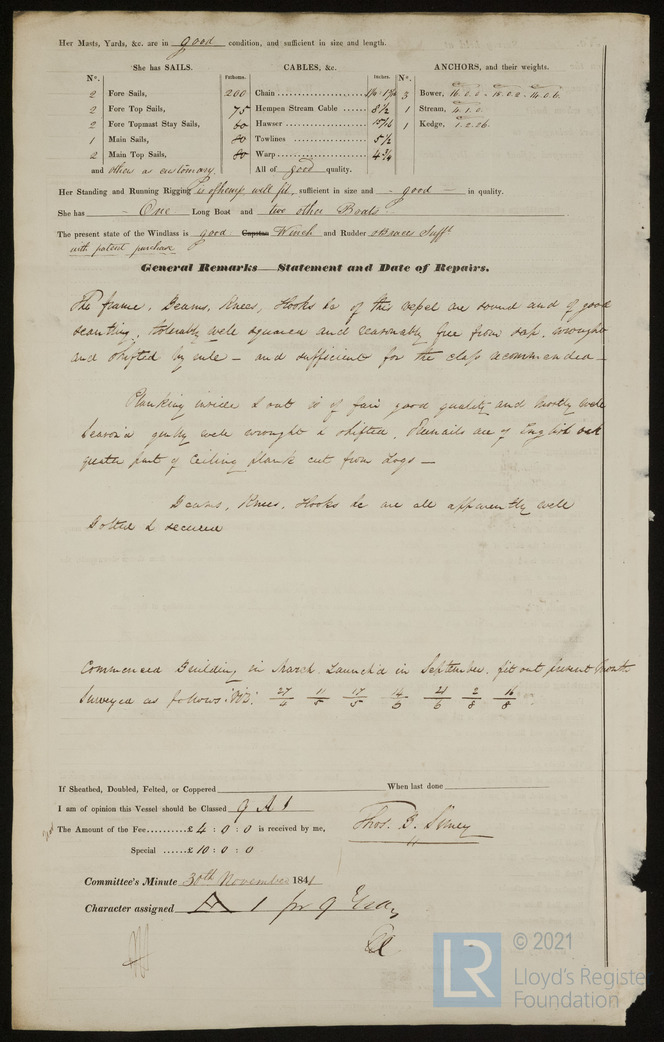 Her Masts, Yards, &c. are in good condition, and sufficient in size and length.
She has SAILS. CABLES, &c. ANCHORS, and their weights.
N°. Fathoms. Inches. N°.
2 Fore Sails, 200 Chain 3 Bower, 16.0.0 - 15.0.2 - 14.0.6
2 Fore Top Sails, 75 Hempen Stream Cable 8 1/2 1 Stream, 4.1.0
2 Fore Topmast Stay Sails, 80 Hawser 1 Kedge, 1.2.26
1 Main Sails, 80 Towlines 5 1/2
2 Main Top Sails, 80 Warp 4 3/4
and other as customary. All of good quality.
Her Standing and Running Rigging is of hemp well fit, sufficient in size and - good - in quality.
She has - One Long Boat and two other Boats
The present state of the Windlass is good Capstan Winch and Rudder Braces Sufft
with patent purchase
General Remarks — Statement and Date of Repairs.
The frame, Beams, Knees, Hooks &c of this vessel are sound and of good
scantling, tolerably well squared and reasonably free from sap, wrought
and shifted by rule - and sufficient for the class recommended -
Planking inside & out is of fair good quality and mostly well
Season'd well wrought & shifted, Treenails are of English oak
greater part of Ceiling plank cut from Logs -
Beams, Knees, Hooks &c are all apparently well
Bolted & secured
Commenced Building in March. Launch'd in September. fit out present Month
Surveyed as follows Viz: 27/4 11/5 17/5 14/6 21/6 2/8 16/8
If Sheathed, Doubled, Felted, or Coppered When last done
I am of opinion this Vessel should be Classed 9 A 1
The Amount of the Fee..........£ 4 : 0 : 0 is received by me,
Thos. B. Simey
Special ......£ 10 : 0 : 0
Committee's Minute 30th November 1841
Character assigned A 1 for 9 Years
LR
© 2021
Lloyd's Register
Foundation